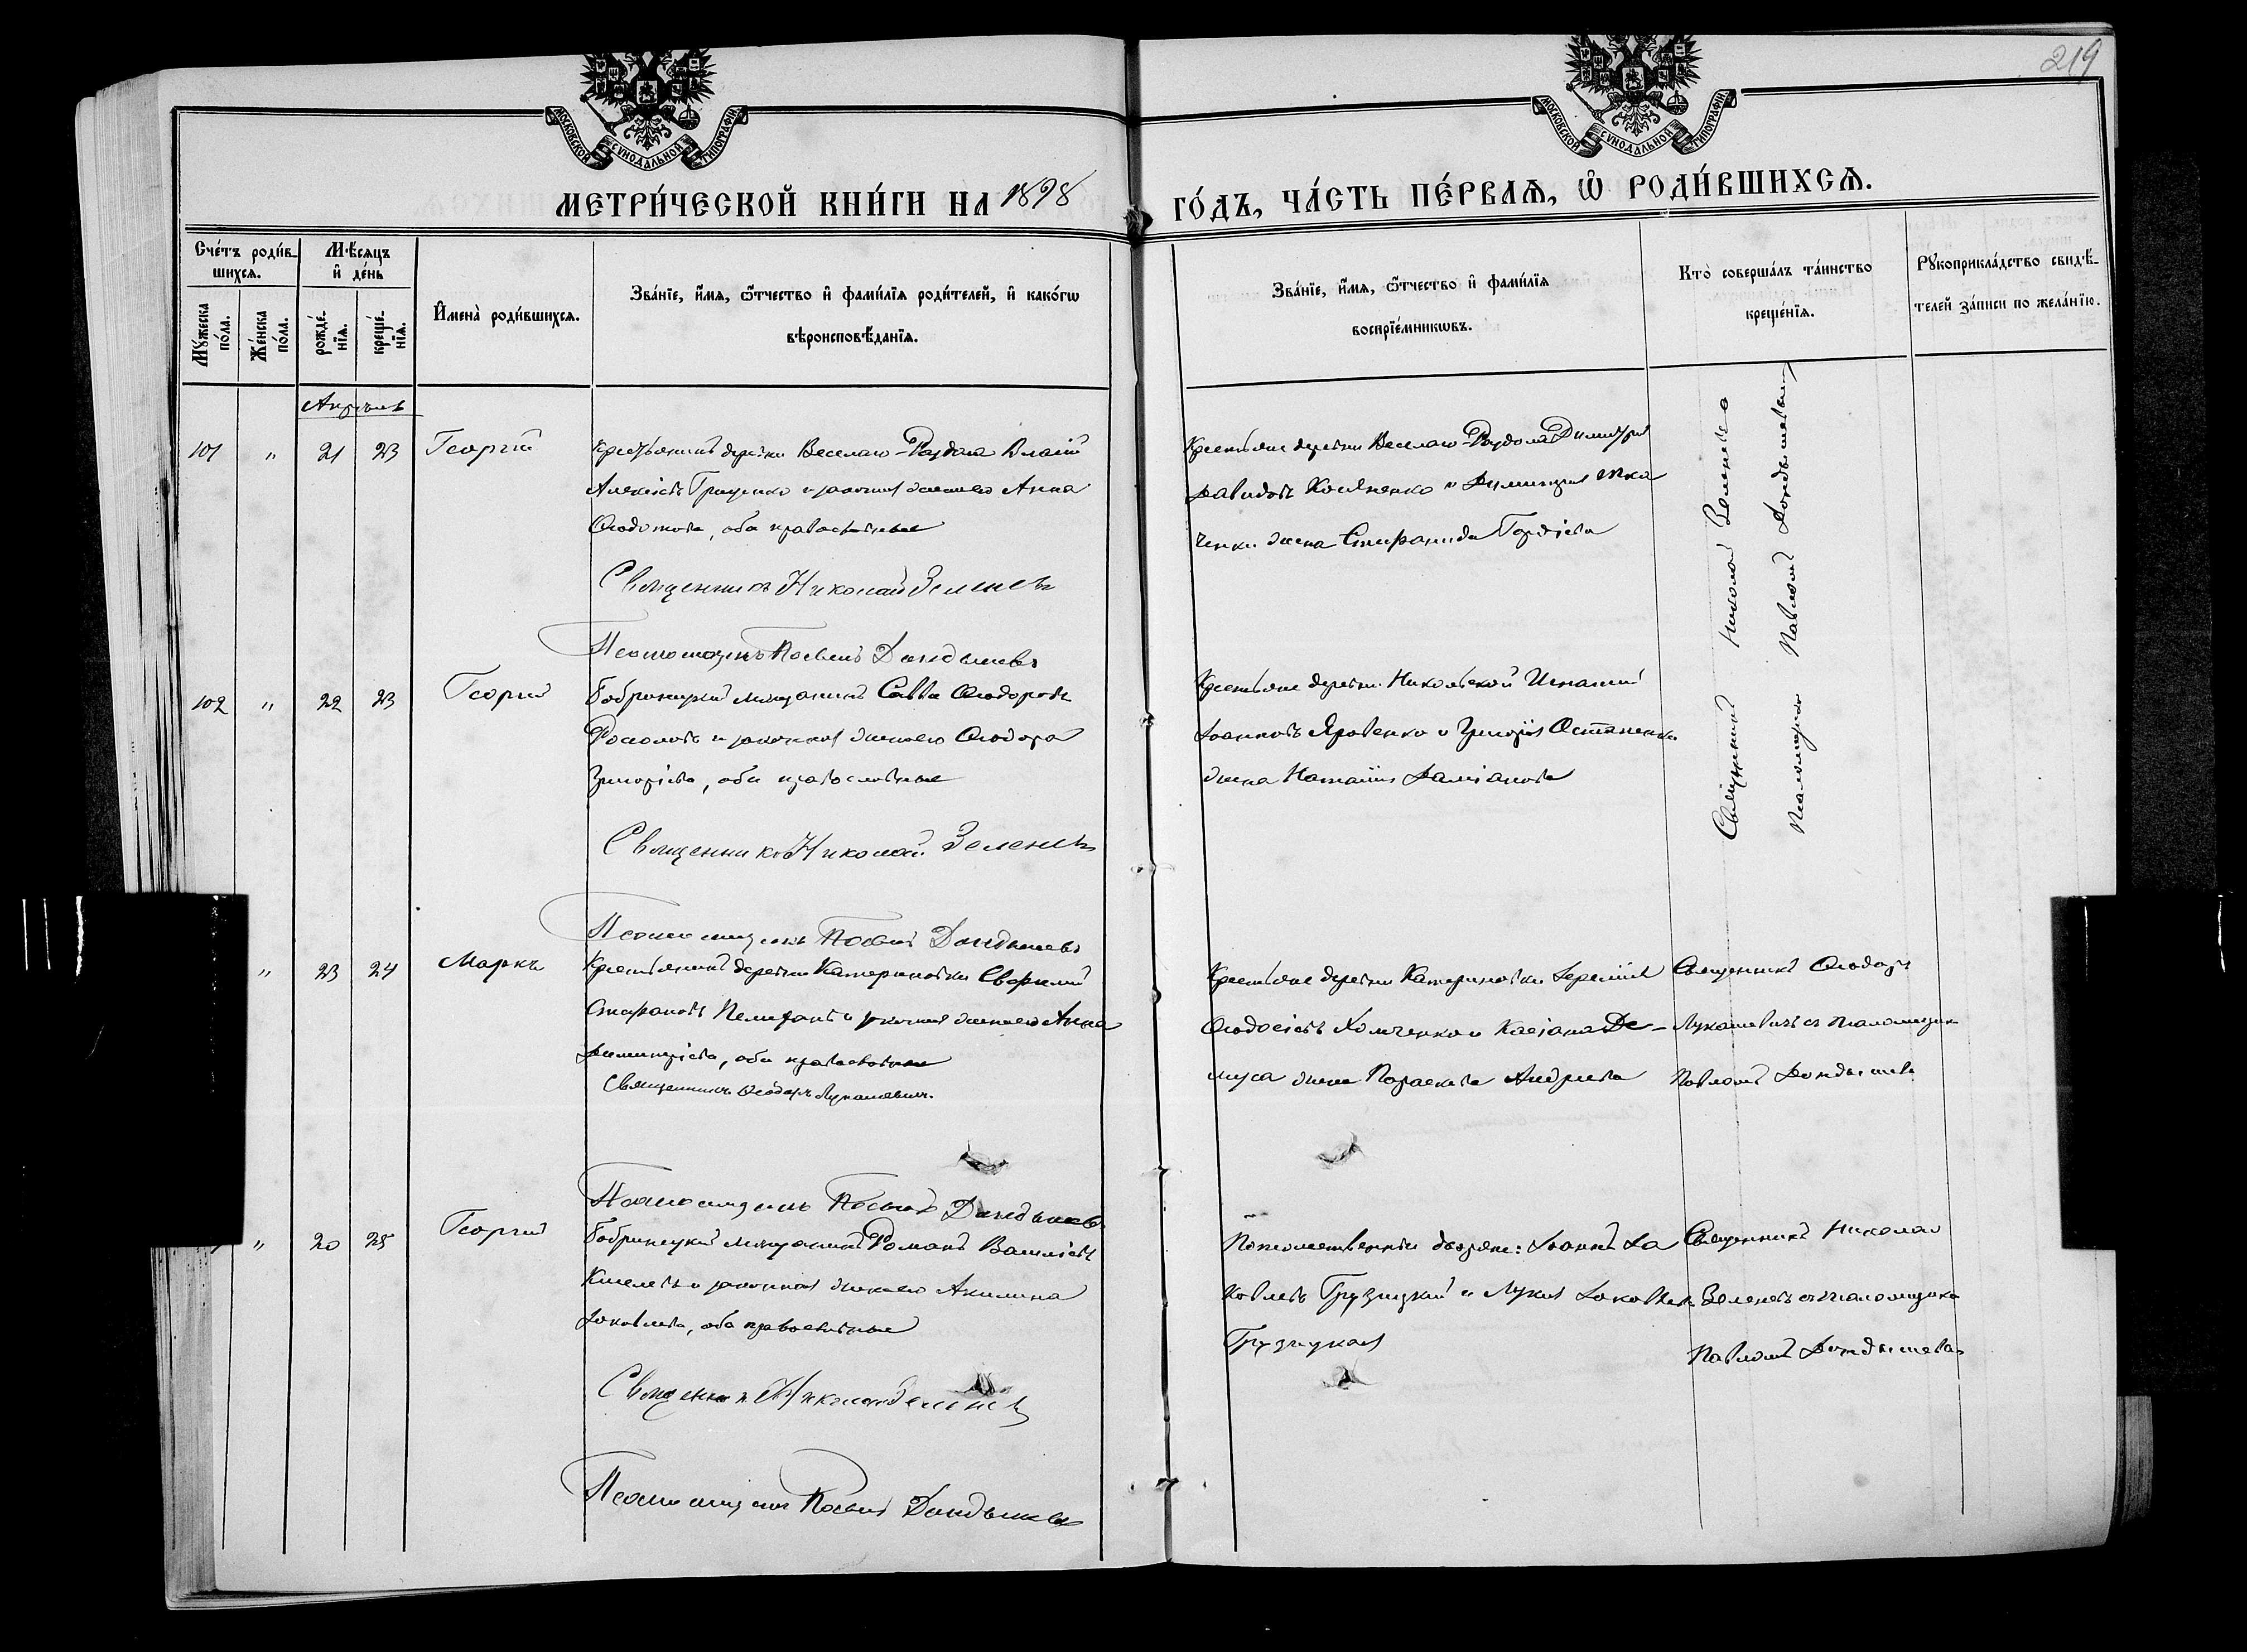 219
МОСКОВСКОЙ СѴНОДАЛЬНОЙ ТИПОГРАФІИ
МОСКОВСКОЙ СѴНОДАЛЬНОЙ ТИПОГРАФІИ
МЕТРИ́ЧЕСКОЙ КНИ́ГИ НА 1898 ГО́ДЪ, ЧА́СТЬ ПЕ́РВАѦ, Ѡ РОДИ́ВШИХСѦ.
Сче́тъ роди́в-
шихсѧ.
Мѣ́сяцъ
и҆ де́нь
Мꙋ́жеска по́ла.
Же́нска по́ла.
рожде́-нїѧ.
креще́-нїѧ.
И҆мена̀ роди́вшихсѧ.
Зва́нїе, и҆́мѧ, ѻ҆́тчество и҆ фами́лїѧ роди́телей, и҆ како́гѡ
вѣроисповѣ́данїѧ.
Зва́нїе, и҆́мѧ, ѻ҆́тчество и҆ фами́лїѧ
воспрїе́мникѡвъ.
Кто̀ соверша́лъ та́инство
креще́нїѧ.
Рꙋкоприкла́дство свидѣ́-
телей за́писи по жела́нїю.
Апрѣль
101 " 21 23 Георгій
Крестьянинъ деревни Веселаго-Раздола Власій
Алексѣевъ Гриценко и законная жена его Анна
Ѳеодотова, оба православные
Священникъ Николай Зеленевъ
Псаломщикъ Павелъ Дондышевъ
Крестьяне деревни Веселаго-Раздола Димитрій
Давидовъ Косяненко и Димитрія Тка
ченки жена Стефанида Гордіева
Священникъ Николай Зеленевъ
Псаломщикъ Павломъ Дондышевымъ
102 " 22 23 Георгій
Бобринецкій мѣщанинъ Савва Ѳеодоровъ
и законная жена его Ѳеодора
Григоріева, оба православные
Священникъ Николай Зеленевъ
Псаломщикъ Павелъ Дондышевъ
Крестьяне деревни Никольской Игнатій
Іоанновъ Яровенко и Григорія Остапенки
жена Наталія Даміанова
" 23 24 Маркъ
Крестьянинъ деревни Катериновки Евфимій
Стефановъ и законная жена его Анна
Димитріева, оба православные
Священникъ Ѳеодоръ Лукашевичъ.
Псаломщикъ Павелъ Дондышевъ
Крестьяне деревни Катериновки Іеремія
Ѳеодосіевъ Хомченко и Касіана Де-
муса жена Параскева Андреева
Священникъ Ѳеодоръ
Лукашевичъ съ псаломщик
Павломъ Дондышев
" 20 25 Георгій
Бобринецкій мѣщанинъ Романъ Василіевъ
Киселевъ и законная жена его Акилина
Іаковлева, оба православные
Священникъ Николай Зеленевъ
Псаломщикъ Павелъ Дондышевъ
Потомственные дворяне: Іоаннъ Іа
ковлевъ Грузицкій и Лукія Іаковлева
Грузицкая
Священникъ Николай
Зеленевъ съ псаломщиком
Павломъ Дондышевъ